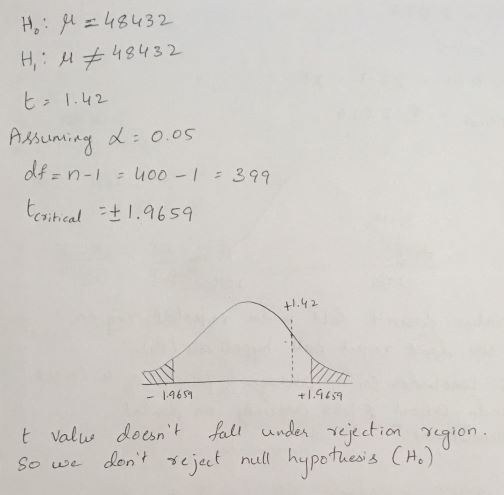 H₀: μ = 48432
H₁: μ ≠ 48432
t = 1.42
Assuming α = 0.05
df = n-1 = 400 - 1 = 399
t critical = ± 1.9659
+1.42
- 1.9659
+1.9659
t value doesn't fall under rejection region.
So we don't reject null hypothesis (H₀)